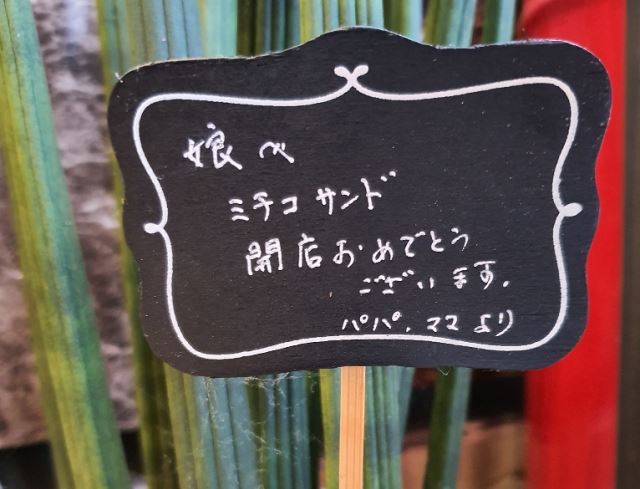 娘へ
ミチコサンド
開店おめでとう
ございます.
パパ.ママより